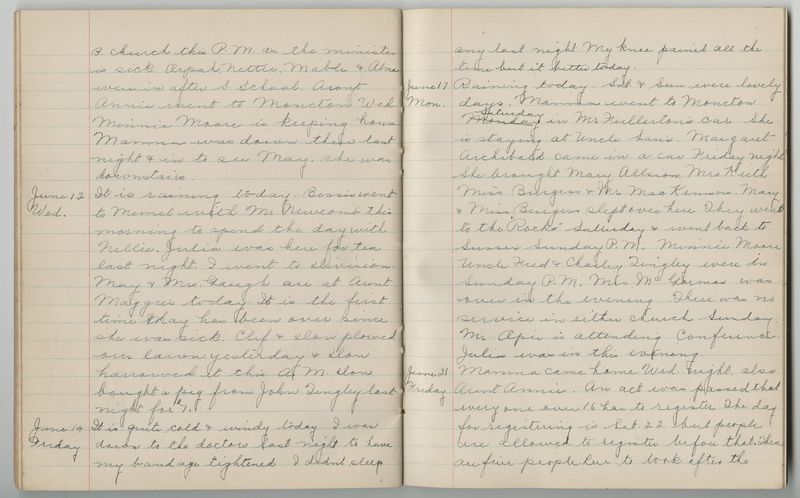 B. church this P.M. as the minister
is sick. Orpah, Nettie, Mable & Alma
were in after S School Aunt
Annie went to Moncton Wed
Minnie Moore is keeping house
Mamma was down there last
night & in to see May. she was
downstairs.
June 12 It is raining today. Bessie went
Wed. to Memel with Mr. Newcomb this
morning to spend the day with
Nellie. Julia was here for tea
last night. I went to Division.
May & Mrs. Gough are at Aunt
Maggie's today It is the first
time May has been over since
she was sick. Clif & Don plowed
our lawn yesterday & Don
harrowed it this A.M. Don
bought a pig from John Tingley last
night for $7.
June 14 It is quite cold & windy today. I was
Friday down to the doctors last night to have
my bandage tightened. I didnt sleep
any last night My knee pained all the
time but it better today.
June 17 Raining today. Sat & Sun were lovely
Mon. days. Mamma went to Moncton
Saturday
Monday in Mr Fullerton's car She
is staying at Uncle San's. Margaret
Archibald came in a car Friday night
She brought Mary Allison, Mrs Keith
Miss Burgess & Mr MacKennon. Mary
& Miss Burgess slept over here. They went
to the "Rocks" Saturday & went back to
Sussex Sunday P.M. Minnie Moore
Uncle Fred & Charley Tingley were in
Sunday P.M. Mrs McGorman was
over in the evening. There was no
service in either church Sunday.
Mr. Apie is attending Conference.
Julia was in this evening
June 21 Mamma came home Wed. night, also
Friday Aunt Annie. An act was passed that
every one over 16 has to register. The day
for registering is Sat 22 but people
are allowed to register before that. There
are five people here to look after the